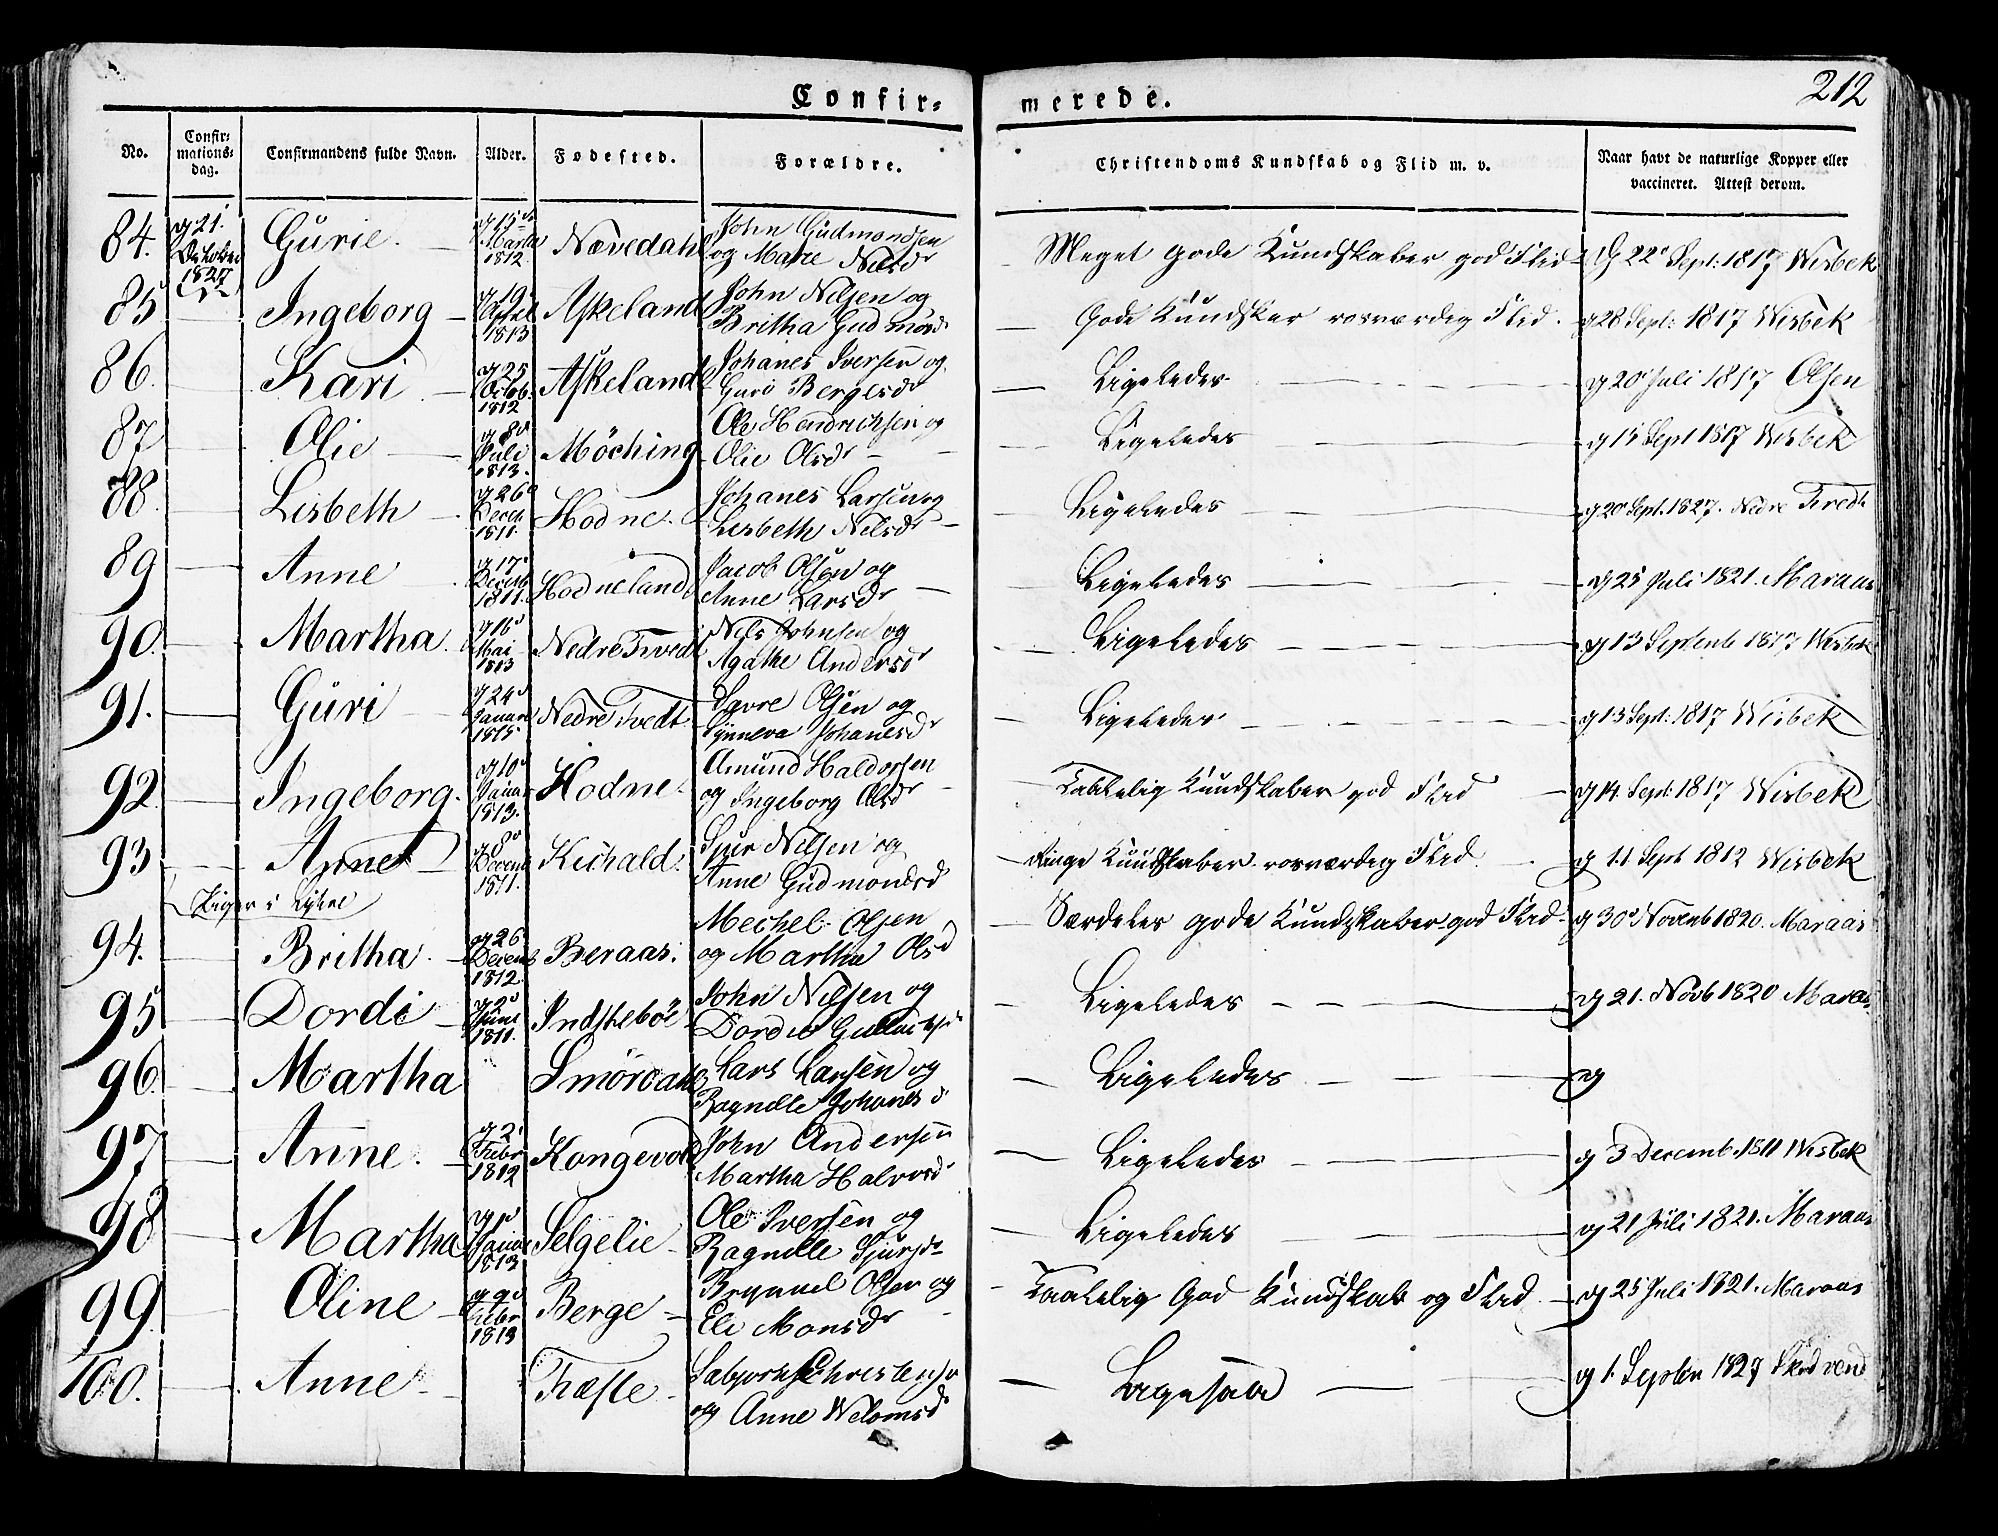 212
Confir-
merede.
No.
Confir-
mations-
dag.
Confirmandens fulde Navn.
Alder.
Fødested.
Forældre.
Christendoms Kundskab og Flid m. v.
Naar havt de naturlige Kopper eller
vaccineret. Attest derom.
84. 21. October 1827 Gurie. 15 Martii 1812 Nævedahl John Gudmondsen og Marie Nilsdr Meget gode Kundskaber god Flid 22 Sept: 1817 Wisbek
85 Ingeborg 19 April 1813 Askeland John Nilsen og Britha Gudmønd Gode Kundsker rosværdig Flid. 28 Sept: 1817 Wisbek
86. Kari 25 Octob. 1812 Askeland Johanes Iversen og Guro Bergesdr Ligeledes 20 Juli 1817 Olsen
87 Olie 8d Juli 1813. Möching Ole Hendrichsen og Olie Olsdr Ligeledes 15 Sept 1817 Wisbek
88. Lisbeth 26 Decb 1811. Hodne. Johanes Larsen og Lisbeth Nilsdr Ligeledes 20 Sept. 1827. Nedre Tvedt
89 Anne 17 Decemb 1811. Hodneland Jacob Olsen og Anne Larsdr Ligeledes 25 Juli 1821. Maraas
90. Martha. 16 Mai 1813 Nedre Tvedt Nils Johnsen og Agathe Andersdr Ligeledes 13 Septemb 1817 Wisbek
91. Guri 24 Januari Nedre Tvedt Savre Olsen og Synneva Johanesdr Ligeledes 13 Sept: 1817 Wisbek
92. Ingeborg. 10 Januar 1813. Hodne. Amund Haldorsen og Ingeborg Olsdr Taalelig Kundskaber god Flid 14. Sept: 1817 Wisbek
93 Anne 8d 1811. Kichald. Sjur Nilsen og Anne Gudmondsd Ringe Kundskaber rosværdig Flid. 11 Sept 1812 Wisbek
Piger i Lykne
94. Britha. 26 Decemb 1812. Beraas. Mechel Olsen og Martha Olsd Særdeles gode Kundskaber god Flid. 30 Novemb 1820. Maraas
95 Dordi 2d Juni Indstebøe John Nilsen og Dordie Ligeledes 21. Novb 1820 Maraas
96. Martha Smördahl Lars Larsen og Ragnelle Johanesd Ligeledes
97 Anne. 2 Febr 1812 Kongevold John Andersen Martha Halvorsd Ligeledes 3 Decemb. 1811 Wisbek
98 Martha Januar 1813 Selgelie Ole Iversen og Ragnelle Sjursdr Ligeledes 21 Juli 1821. Maraas
99. Oline 9d Febr 1813 Berge Brynnel Olsen og Eli Monsdr Taalelig God Kundskab og Flid 25 Juli 1821. Maraas
100. Anne Træfte og Anne Ligesaa 1. Septbr 1827 Skodvend